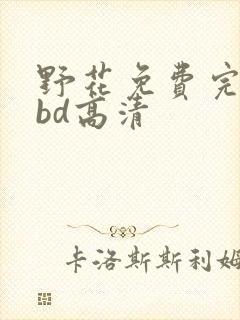 野花免费完
bd高清
卡洛斯斯利姆